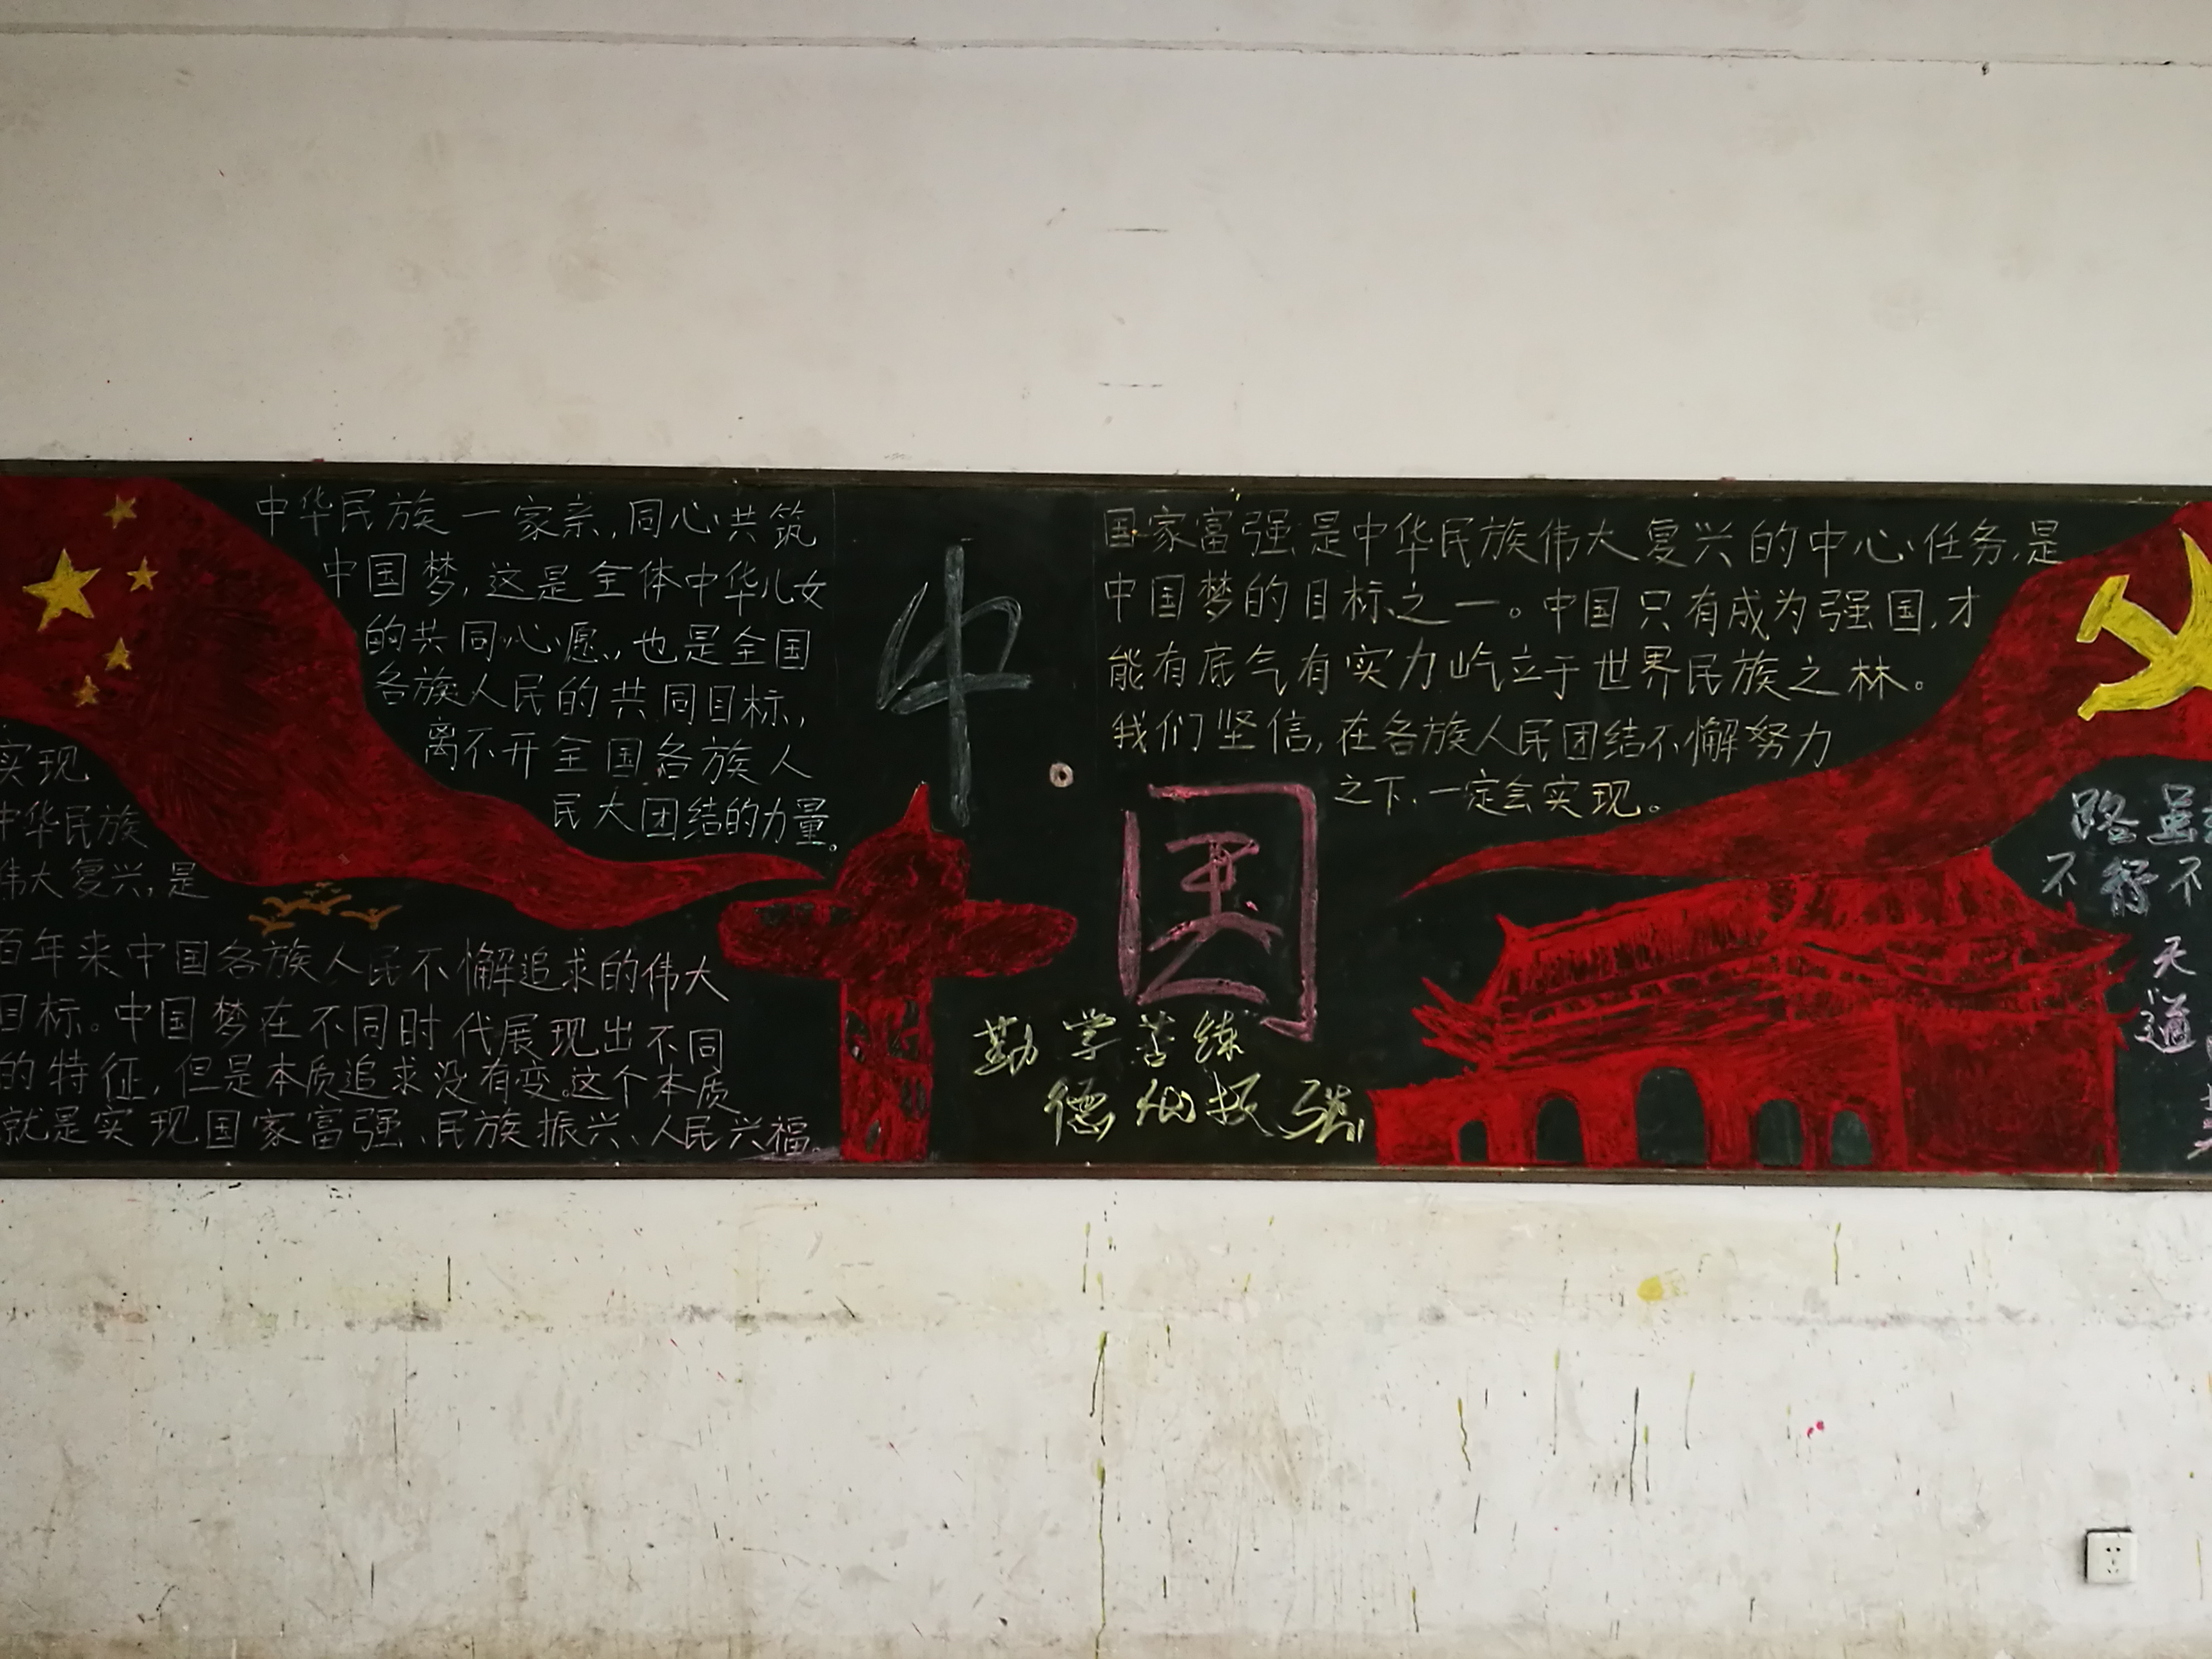 中华民族一家亲,同心共筑
中国梦,这是全体中华儿女
的共同心愿,也是全国
各族人民的共同目标,
离不开全国各族人
民大团结的力量。
实现
中华民族
伟大复兴,是
百年来中国各族人民不懈追求的伟大
目标。中国梦在不同时代展现出不同
的特征,但是本质追求没有变。这个本质
就是实现国家富强、民族振兴、人民兴福。
中
国
勤学苦练
德
国家富强是中华民族伟大复兴的中心任务,是
中国梦的目标之一。中国只有成为强国,才
能有底气有实力屹立于世界民族之林。
我们坚信,在各族人民团结不懈努力
之下,一定会实现。
路虽
不行不
天
道